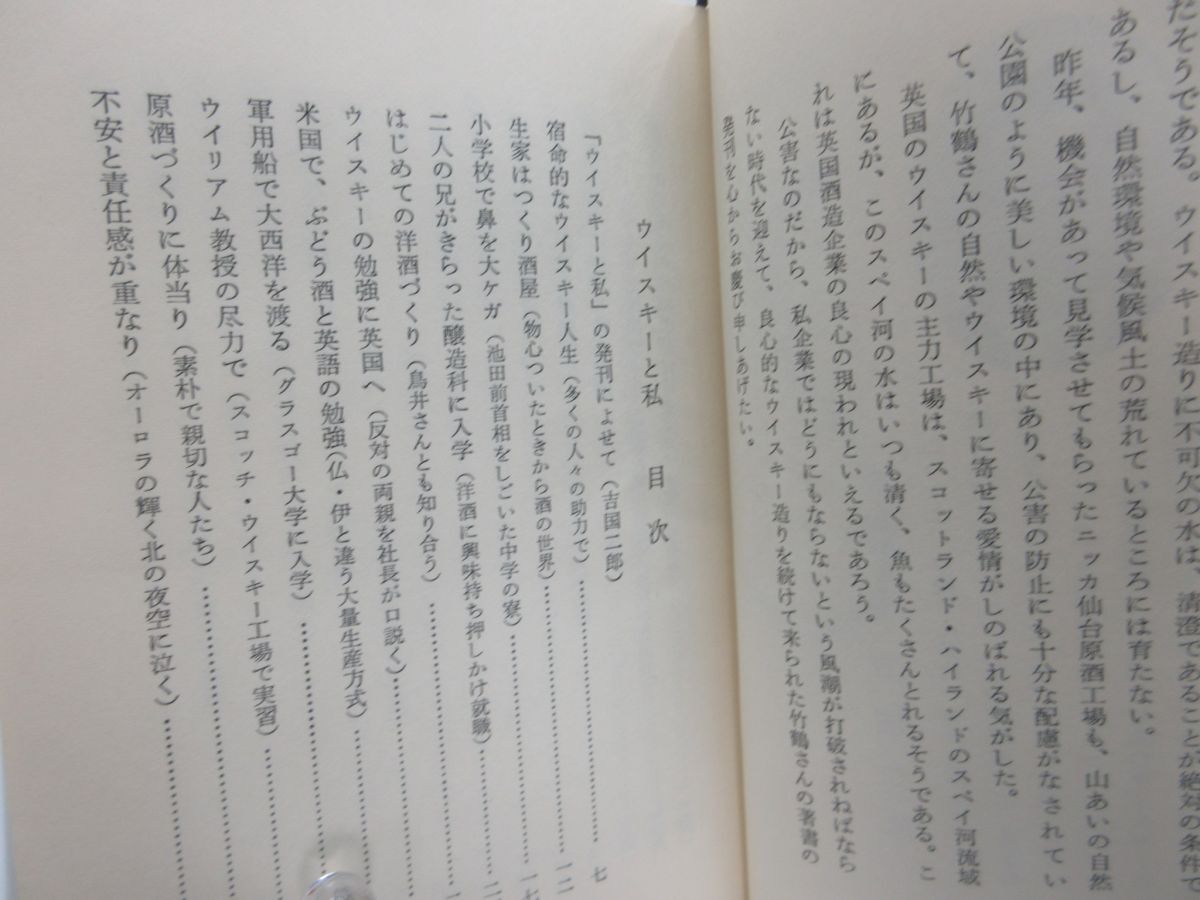 だそうである。ウイスキー造りに不可欠の水は、清澄であることが絶対の条件で
あるし、自然環境や気候風土の荒れているところには育たない。
昨年、機会があって見学させてもらったニッカ仙台原酒工場も、山あいの自然
公園のように美しい環境の中にあり、公害の防止にも十分な配慮がなされてい
て、竹鶴さんの自然やウイスキーに寄せる愛情がしのばれる気がした。
英国のウイスキーの主力工場は、スコットランド・ハイランドのスペイ河流域
にあるが、このスペイ河の水はいつも清く、魚もたくさんとれるそうである。こ
れは英国酒造企業の良心の現われといえるであろう。
公害なのだから、私企業ではどうにもならないという風潮が打破されねばなら
ない時代を迎えて、良心的なウイスキー造りを続けて来られた竹鶴さんの著書の
発刊を心からお慶び申しあげたい。
ウイスキーと私 目次
「ウイスキーと私」の発刊によせて(吉国二郎)
宿命的なウイスキー人生(多くの人々の助力で)…………七
生家はつくり酒屋(物心ついたときから酒の世界)…………一二
小学校で鼻を大ケガ(池田前首相をしごいた中学の寮)…………一七
二人の兄がきらった醸造科に入学(洋酒に興味持ち押しかけ就職)…………二
はじめての洋酒づくり(鳥井さんとも知り合う)…………
ウイスキーの勉強に英国へ(反対の両親を社長が口説く)…………
米国で、ぶどう酒と英語の勉強(仏・伊と違う大量生産方式)…………
軍用船で大西洋を渡る(グラスゴー大学に入学)…………
ウイリアム教授の尽力で(スコッチ・ウイスキー工場で実習)…………
原酒づくりに体当り(素朴で親切な人たち)…………
不安と責任感が重なり(オーロラの輝く北の夜空に泣く)…………